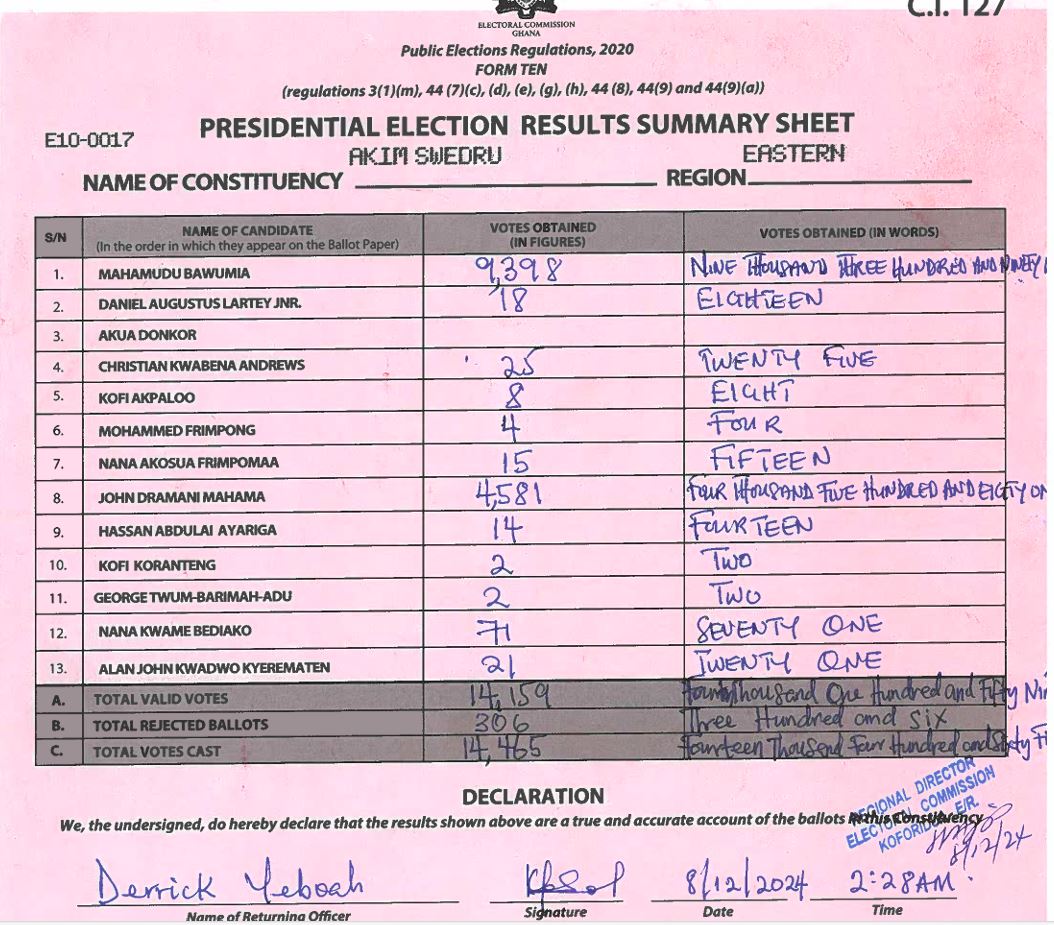 C.I. 127
ELECTORAL COMMISSION
GHANA
Public Elections Regulations, 2020
FORM TEN
(regulations 3(1)(m), 44 (7)(c), (d), (e), (g), (h), 44 (8), 44(9) and 44(9)(a))
PRESIDENTIAL ELECTION RESULTS SUMMARY SHEET
E10-0017
AKIM SWEDRU EASTERN
NAME OF CONSTITUENCY REGION
S/N NAME OF CANDIDATE (In the order in which they appear on the Ballot Paper) VOTES OBTAINED (IN FIGURES) VOTES OBTAINED (IN WORDS)
1. MAHAMUDU BAWUMIA 9,398 NINE THOUSAND THREE HUNDRED AND NINETY
2. DANIEL AUGUSTUS LARTEY JNR. 18 EIGHTEEN
3. AKUA DONKOR
4. CHRISTIAN KWABENA ANDREWS 25 TWENTY FIVE
5. KOFI AKPALOO 8 EIGHT
6. MOHAMMED FRIMPONG 4 FOUR
7. NANA AKOSUA FRIMPOMAA 15 FIFTEEN
8. JOHN DRAMANI MAHAMA 4,581 FOUR THOUSAND FIVE HUNDRED AND EIGTY ON
9. HASSAN ABDULAI AYARIGA 14 FOURTEEN
10. KOFI KORANTENG 2 TWO
11. GEORGE TWUM-BARIMAH-ADU 2 TWO
12. NANA KWAME BEDIAKO 71 SEVENTY ONE
13. ALAN JOHN KWADWO KYEREMATEN 21 TWENTY ONE
A. TOTAL VALID VOTES 14,159 Thousand One Hundred and Fifty Nin
B. TOTAL REJECTED BALLOTS 306 Three Hundred and Six
C. TOTAL VOTES CAST 14,465 Fourteen Thousand Four Hundred and Sixty Fi
DECLARATION
We, the undersigned, do hereby declare that the results shown above are a true and accurate account of the ballots in this Constituency
REGIONAL DIRECTOR
ELECTORAL COMMISSION
KOFORIDUA, E/R.
8/12/24
Derrick Yeboah 8/12/2024 2:28AM
Name of Returning Officer Signature Date Time